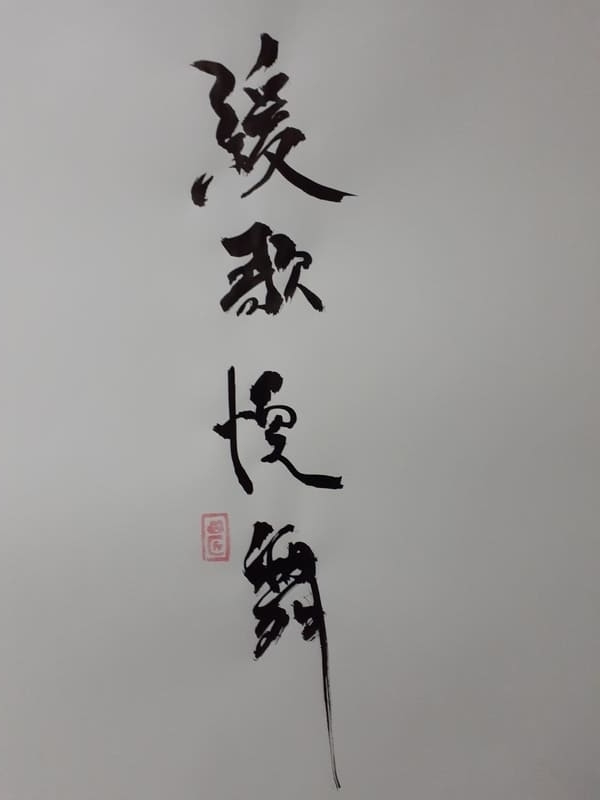 緩歌慢舞